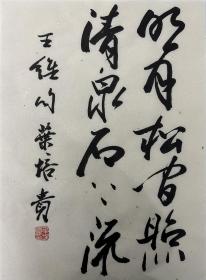 明月松間照
清泉石上流
王維句葉培貴